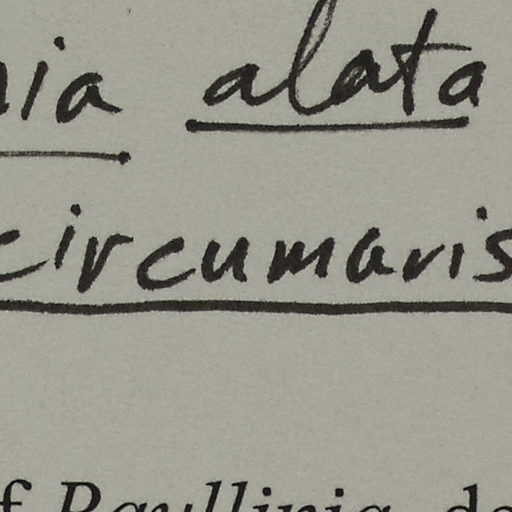 nia alata
circumaris
f Paullinia de